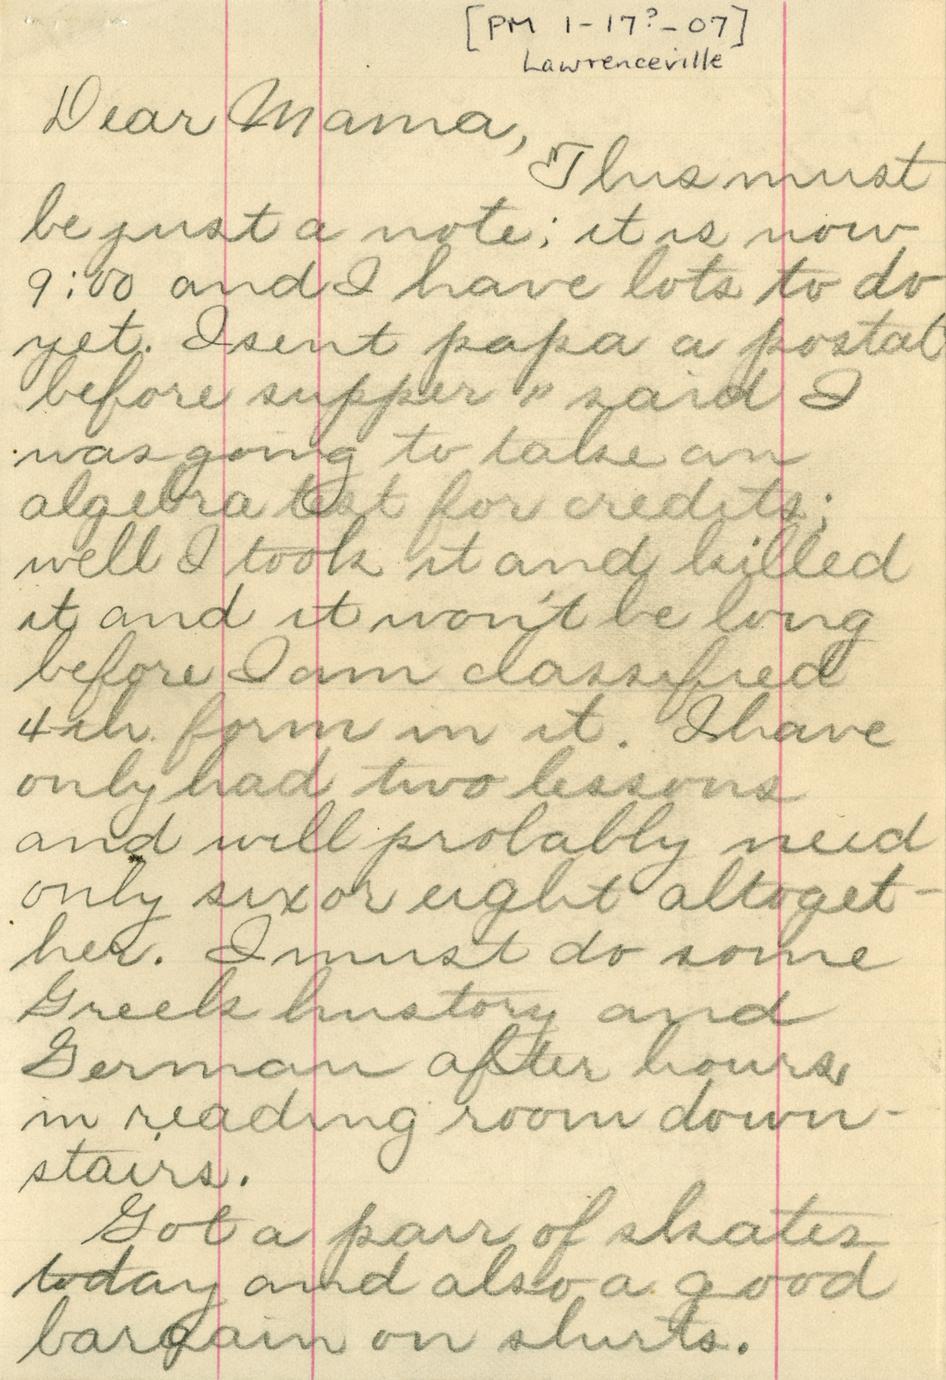 [PM 1-17?-07]
Lawrenceville
Dear Mama,
This must
be just a note; it is now
9:00 and I have lots to do
yet. I sent papa a postal
before supper " said I
was going to take an
algebra test for credits;
well I took it and killed
it and it won't be long
before I am classified
4th. form in it. I have
only had two lessons
and will probably need
only six or eight altoget-
her. I must do some
Greek history and
German after hours
in reading room down-
stairs.
Got a pair of skates
today and also a good
bargain on shirts.